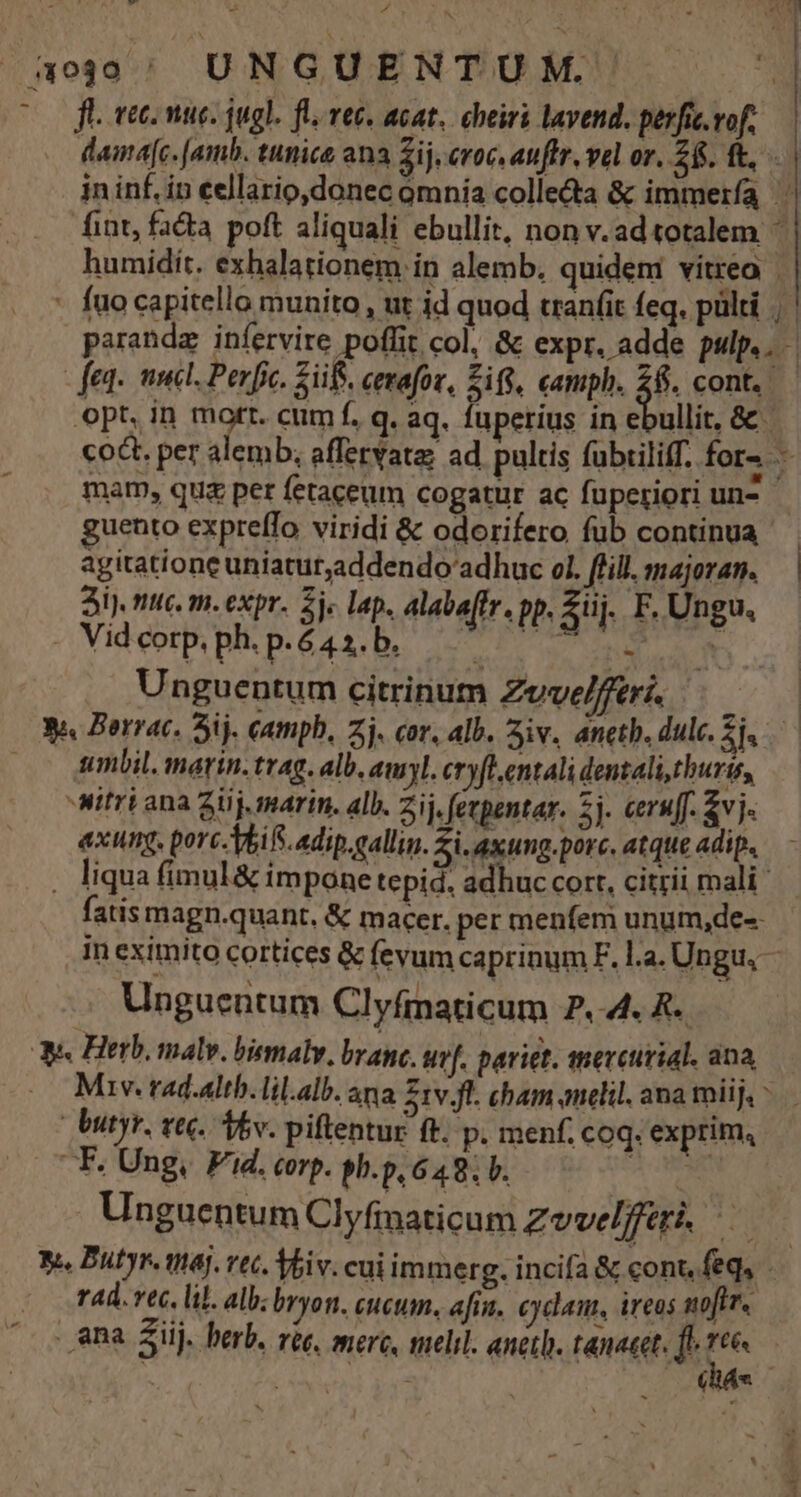 1030 UNGUENTUM.
fl. rec. nuc. jugl. fl. rec. acat. cheiri lavend. perſic. roſ.
damaſc. ſamb. tunicæ ana ℥ij. croc. auſtr. vel or. ℥ß. ſt.
in inf. in cellario, donec omnia collecta & immerſa
ſint, facta poſt aliquali ebullit. non v. ad totalem
humidit. exhalationem in alemb. quidem vitreo
ſuo capitello munito, ut id quod tranſit ſeq. pulti
parandæ inſervire poſſit col. & expr. adde pulp.
ſeq. nucl. Perſic. ℥iiß. ceræ for. ℥iß. camph. ℥ß. cont.
opt. in mort. cum ſ. q. aq. ſuperius in ebullit. &
coct. per alemb. aſſervatæ ad pultis ſubtiliſſ. for-
mam, quæ per ſetaceum cogatur ac ſuperiori un-
guento expreſſo viridi & odorifero ſub continua
agitatione uniatur, addendo adhuc ol. ſtill. majoran.
ʒij. nuc. m. expr. ℥j. lap. alabaſtr. pp. ℥iij. F. Ungu.
Vid corp. ph. p. 642. b.
Unguentum citrinum Zvvelfferi.
℞. Borrac. ʒij. camph. ʒj. cor. alb. ʒiv. aneth. dulc. ℥j.
umbil. marin. trag. alb. amyl. cryſt. entali dentali, thuris,
nitri ana ℥iij. marin. alb. ʒij. ſerpentar. ℥j. ceruſſ. ℥vj.
axung. porc. ℔iß. adip. gallin. ℥i. axung. porc. atque adip.
liqua ſimul & impone tepid. adhuc cort. citrii mali
ſatis magn. quant. & macer. per menſem unum, de-
in eximito cortices & ſevum caprinum F. l. a. Ungu.
Unguentum Clyſmaticum P. A. R.
℞. Herb. malv. bismalv. branc. urſ. pariet. mercurial. ana
Miv. rad. alth. lil. alb. ana ℥iv. fl. cham. melil. ana miij.
butyr. rec. ℔v. piſtentur ſt. p. menſ. coq. exprim.
F. Ung. Vid. corp. ph. p. 648. b.
Unguentum Clyſmaticum Zvvelfferi.
℞. Butyr. maj. rec. ℔iv. cui immerg. inciſa & cont. ſeq.
rad. rec. lil. alb. bryon. cucum. aſin. cyclam. ireos noſtr.
ana ℥iij. herb. rec. merc. melil. aneth. tanacet. fl. rec.